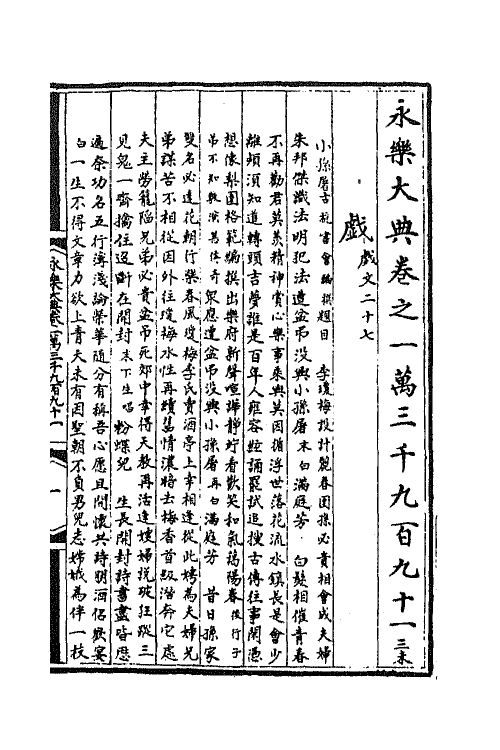 永樂大典卷之一萬三千九百九十一 三未
戲 戲文二十七
小孫屠 古杭書會編撰 題目 李瓊梅設計麗春園 孫必貴相會成夫婦
朱邦傑識法明犯法 遭盆吊沒興小孫屠 末白滿庭芳 白髮相催青春
不再勸君莫羨精神賞心樂事乘興莫因循浮世落花流水鎮長是會少
離頻須知道轉頭吉夢誰是百年人雍容絃誦罷試追搜古傳往事閑憑
想像梨園格範編撰出樂府新聲喧嘩靜竚看歡笑和氣藹陽春 後行子
弟不知敷演甚傳奇 衆應 遭盆吊沒興小孫屠 再白滿庭芳 昔日孫家
雙名必達花朝行樂春風瓊梅李氏賣酒亭上幸相逢從此娉為夫婦兄
弟謀苦不相從因外往瓊梅水性再續舊情濃將去梅香首級潛奔它處
夫主勞籠陷兄弟必貴盆吊死郊中幸得天教再活逢嫂婦說破狂蹤三
見鬼一齊擒住迢斷在開封 末下 生唱 粉蝶兒 生長開封詩書盡皆歷
遍奈功名五行薄淺論榮華隨分有稱吾心愿且開懷共詩朋酒侶歡宴
白一生不得文章力欲上青天未有因聖朝不負男兒志嫦娥為伴一枝
永樂大典卷一萬三千九百九十一
一